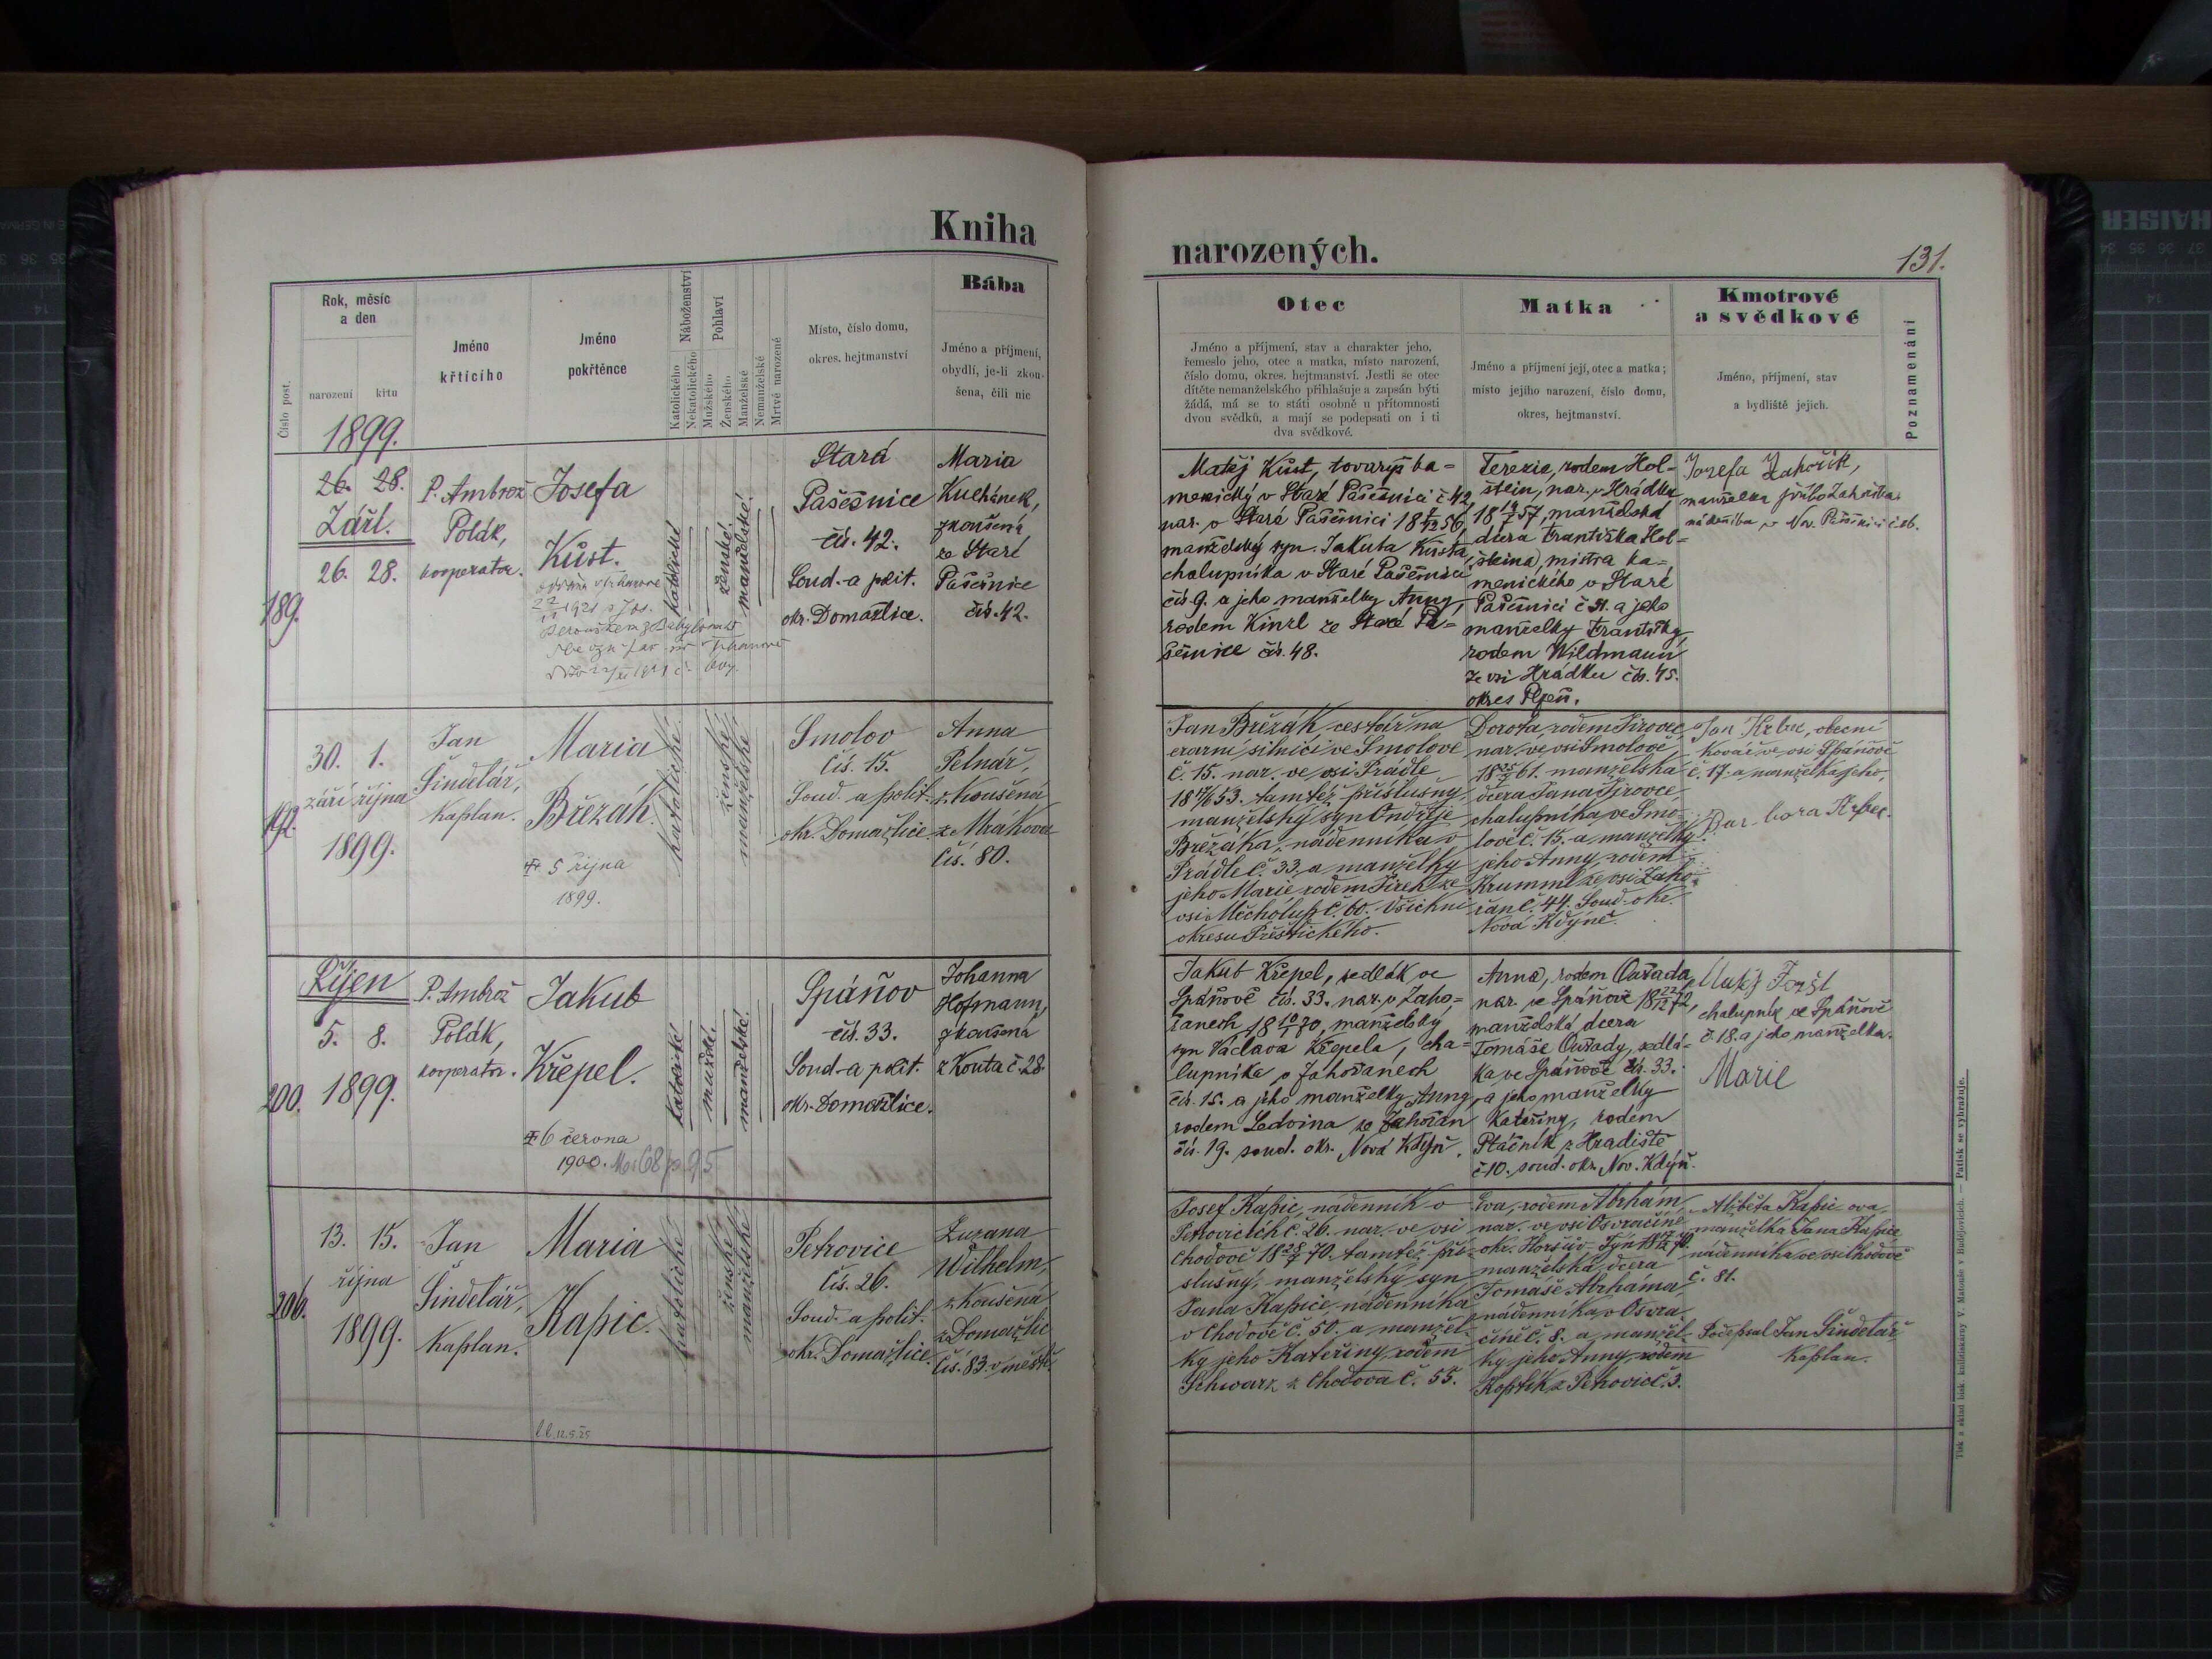 Kniha
narozených.
131.
Číslo post.
Rok, měsíc
a den
narození
křtu
Jméno
křtícího
Jméno
pokřtěnce
Náboženství
Katolického
Nekatolického
Pohlaví
Mužského
Ženského
Manželské
Nemanželské
Mrtvě narozené
Místo, číslo domu,
okres. hejtmanství
Bába
Jméno a příjmení,
obydlí, je-li zkou-
šena, čili nic
Otec
Jméno a příjmení, stav a charakter jeho,
řemeslo jeho, otec a matka, místo narození,
číslo domu, okres. hejtmanství. Jestli se otec
dítěte nemanželského přihlašuje a zapsán býti
žádá, má se to státi osobně u přítomnosti
dvou svědků, a mají se podepsati on i ti
dva svědkové.
Matka
Jméno a příjmení její, otec a matka;
místo jejího narození, číslo domu,
okres, hejtmanství.
Kmotrové
a svědkové
Jméno, příjmení, stav
a bydliště jejich.
Poznamenání
1899.
26. 28.
Září.
26. 28.
189.
P. Ambrož
Polák,
kooperator.
Josefa
Kůst.
1921
katolické
ženské.
manželské.
Stará
Pašešnice
čís. 42.
Soud-a polit.
okr. Domažlice.
Maria
Kuchánek,
zkoušená
ze Staré
Pašešnice
čís. 42.
Matěj Kůst, tovaryš ka-
menický v Staré Pašešnici č 42
nar. v Staré Pašešnici 18 56
manželský syn Jakuba Kůsta,
chalupníka v Staré Pašešnici
čís 9. a jeho manželky Anny,
rodem Kinzl ze Staré Pa-
šešnice čís. 48.
Terezie, rodem Hol-
štein, nar. v Hrádku
18 57, manželská
dcera Františka Hol-
šteina, mistra ka-
menického v Staré
Pašešnici č 31. a jeho
manželky Františky,
rodem Wildmann
ze vsi Hrádku čís. 45.
okres Plzeň.
Josefa Zahořík,
manželka
nádeníka v Nov. Pašešnici č. 26.
30. 1.
září října
1899.
192.
Jan
Šindelář,
kaplan.
Maria
Březák.
5 října
1899.
katolické
ženské
manželské
Smolov
čís. 15.
Soud. a polit.
okr. Domažlice
Anna
Pelnář,
zkoušená
z Mrákova
čís. 80.
Jan Březák, cestář na
erární silnici ve Smolově
č. 15. nar. ve vsi Prádle
18 53. tamtéž příslušný,
manželský syn Ondřeje
Březáka, nádenníka v
Prádle č. 33. a manželky
jeho Marie rodem Jírek ze
vsi Měcholup č. 60. všichni
okresu Přeštického.
Dorota rodem Jírovec,
nar. ve vsi Smolově,
18 61. manželská
dcera Jana Jírovce,
chalupníka ve Smo-
lově č. 15. a manželky
jeho Anny, rodem
Krumml ze vsi Zaho-
řan č. 44. Soud. okr.
Nová Kdýně.
Jan Hrbec, obecní
kovář ve vsi Spáňově
č. 17. a manželka jeho,
Barbora Hrbec.
Říjen
5. 8.
1899.
200.
P. Ambrož
Polák,
kooperator.
Jakub
Křepel.
6 června
1900.
katolické
mužské.
manželské.
Spáňov
čís. 33.
Soud-a polit.
okr. Domažlice.
Johanna
Hofmann,
zkoušená
z Kouta č. 28.
Jakub Křepel, sedlák ve
Spáňově čís. 33. nar. v Zaho-
řanech 18 70, manželský
syn Václava Křepela, cha-
lupníka v Zahořanech
čís. 15. a jeho manželky Anny,
rodem Ledvina ze Zahořan
čís. 19. soud. okr. Nová Kdyň.
Anna, rodem Ouřada,
nar. ve Spáňově 18 72,
manželská dcera
Tomáše Ouřady, sedlá-
ka ve Spáňově čís. 33.
a jeho manželky
Kateřiny, rodem
Ptáčník z Hradiště
č 10. soud. okr. Nov. Kdýň.
Matěj Forst
chalupník ve Spáňově
č. 18. a jeho manželka.
Marie
13. 15.
října
1899.
206.
Jan
Šindelář,
kaplan.
Maria
Kapic.
12.5.25
katolické
ženské
manželské
Petrovice
čís. 26.
Soud. a polit.
okr. Domažlice.
Zuzana
Wilhelm,
zkoušená
z Domažlic
čís. 83. v městě.
Josef Kapic, nádenník v
Petrovicích č. 26. nar. ve vsi
Chodově 18 70. tamtéž pří-
slušný, manželský syn
Jana Kapice, nádenníka
v Chodově č. 50. a manžel-
ky jeho Kateřiny, rodem
Schwarz z Chodova č. 55.
Eva, rodem Abrhám,
nar. ve vsi Osvračíně
okr. Horšův-Týn 18 70.
manželská dcera
Tomáše Abrháma,
nádenníka v Osvra-
číně č. 8. a manžel-
ky jeho Anny, rodem
Kopřík z Petrovic č. 3.
Alžběta Kapic ova,
manželka Jana Kapice
nádenníka ve vsi Chodově
č. 81.
Podepsal Jan Šindelář
kaplan.
Tisk a sklad bisk. knihtiskárny V. Matouše v Budějovicích. — Patisk se vyhražuje.